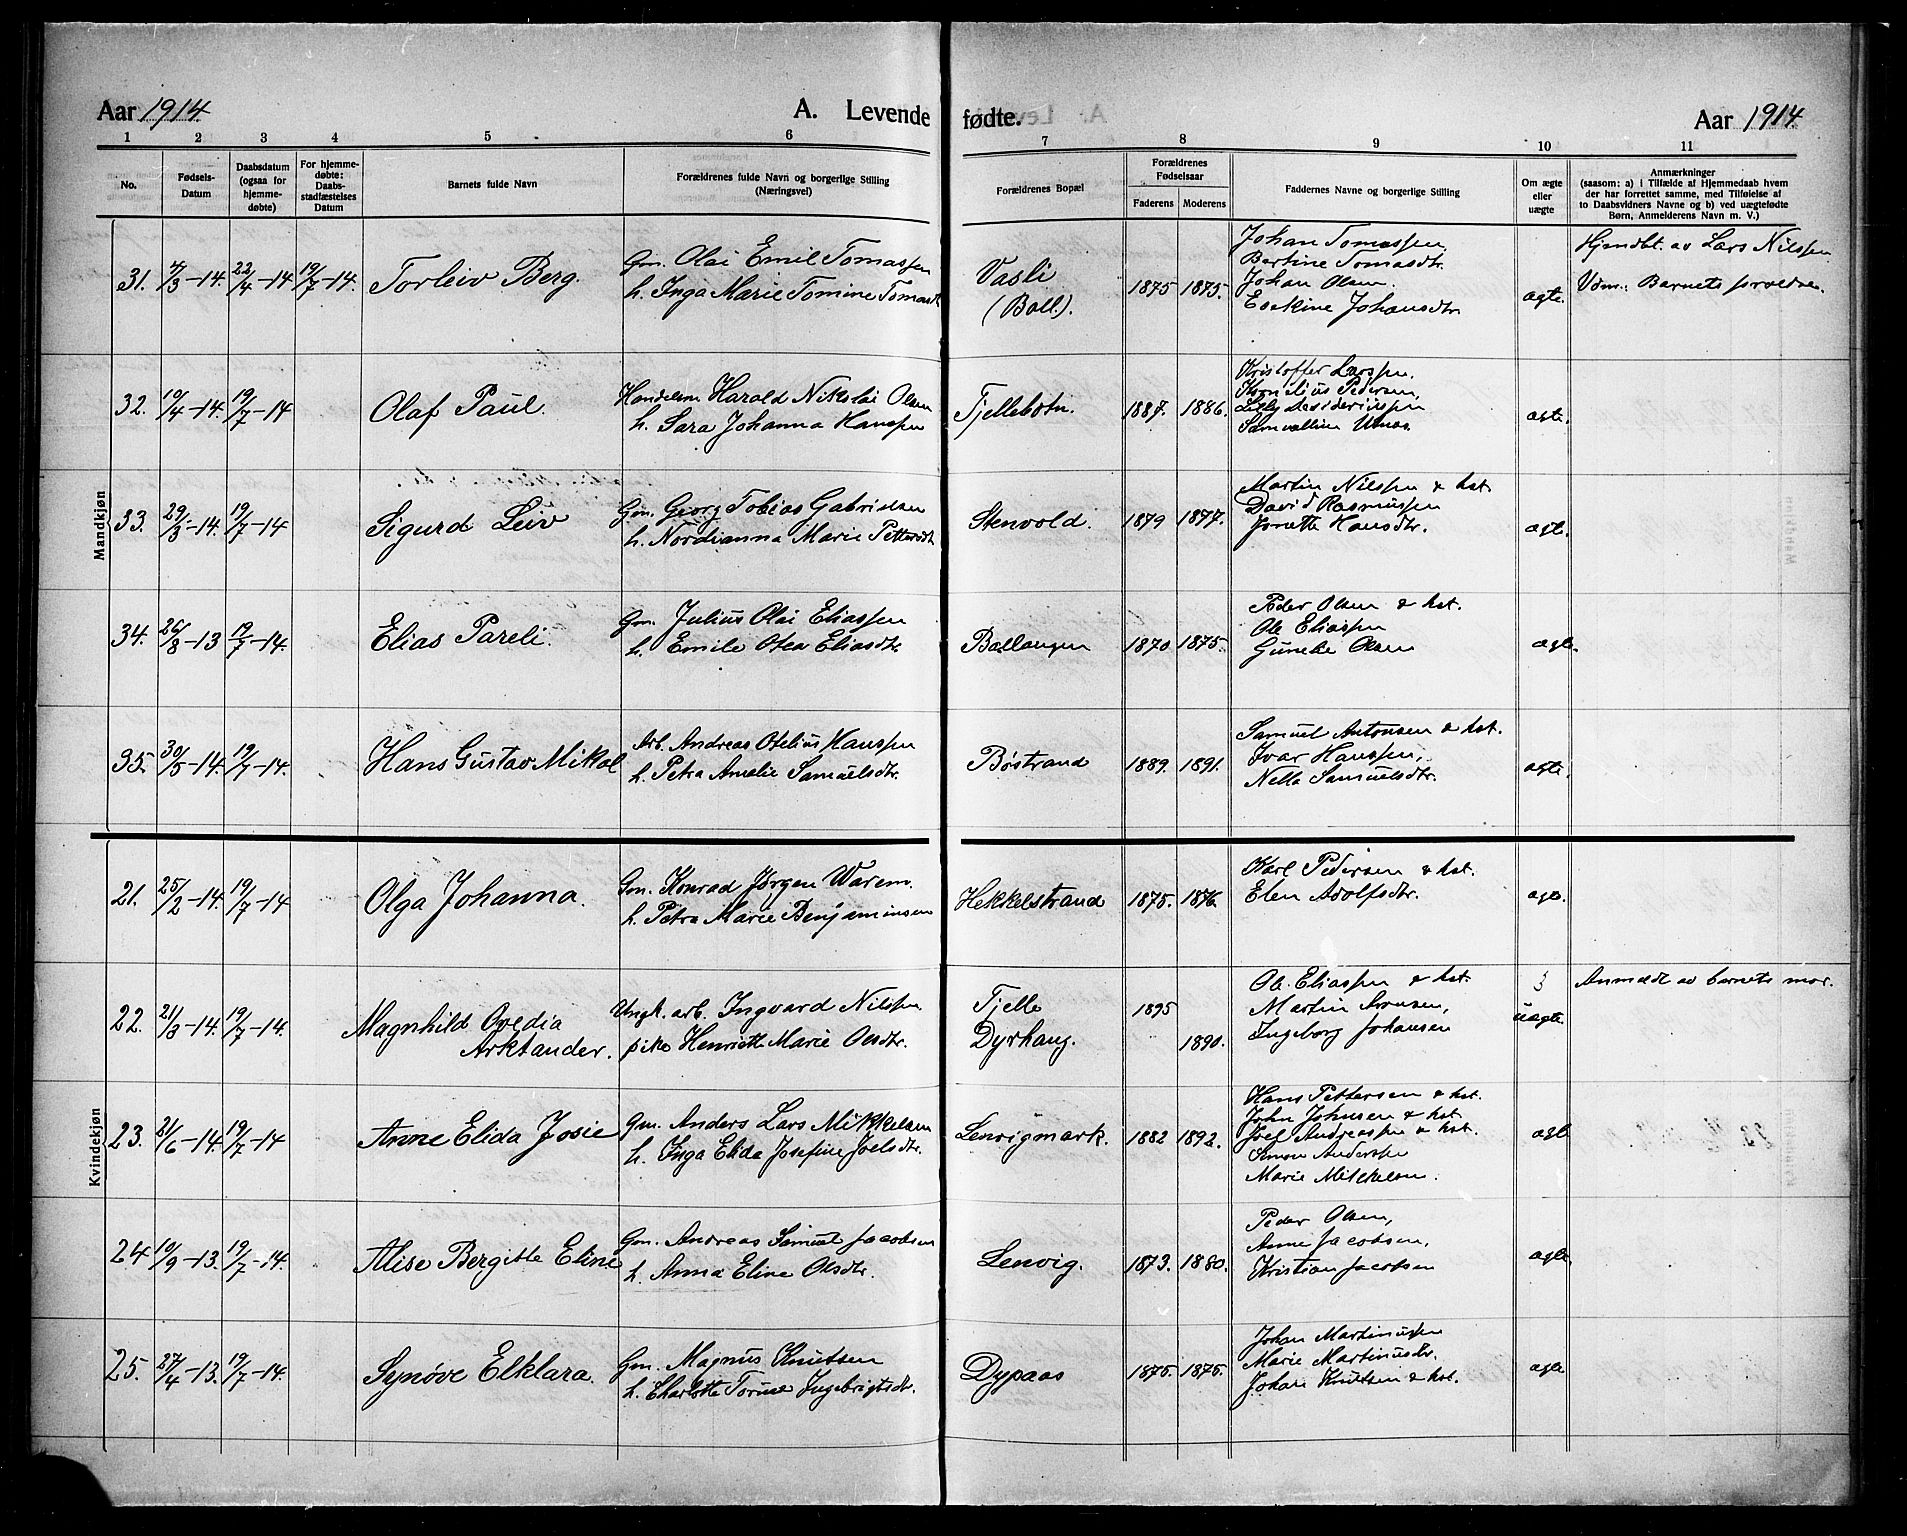 Aar 1914
A. Levende
fødte.
Aar 1914
1 2 3 4 5 6 7 8 9 10 11
No.
Fødsels-
Datum
Daabsdatum
(ogsaa for
hjemme-
døbte)
For hjemme-
døbte:
Daabs-
stadfæstelses
Datum
Barnets fulde Navn
Forældrenes fulde Navn og borgerlige Stilling
(Næringsvei)
Forældrenes Bopæl
Forældrenes
Fødselsaar
Faderens Moderens
Faddernes Navne og borgerlige Stilling
Om ægte
eller
uægte
Anmærkninger
(saasom: a) i Tilfælde af Hjemmedaab hvem
der har forrettet samme, med Tilføielse af
to Daabsvidners Navne og b) ved uægtefødte
Børn, Anmelderens Navn m. V.)
Mandkjøn
31. 4/3-14. 22/4-14 19/7-14. Torleiv Berg.
Gm. Olai Emil Tomassen
h. Inga Marie Tomine Tomasd
Vasli
(Ball.).
1875 1875.
Johan Tomassen,
Bertine Tomasdtr.
Johan Olsen.
Eskine Johansdtr
ægte.
Hjemdbt. av Lars Nilssen.
Vidn.: Barnets forældre.
32. 19/4-14. 19/7-14 Olaf Paul.
Handelsm. Harald Nikolai Olsen
h. Sara Johanna Hanssen
Tjellebotn.
1887. 1886.
Kristoffer Larssen,
Kornelius Pedersen,
ægte.
33. 29/3-14. 19/7-14 Sigurd Leiv
Gm. Georg Tobias Gabrielsen
h. Nordianna Marie Pettersdtr
Stenvold.
1879 1877.
Martin Nilssen & kst.
David Rasmussen
Jonette Hansdtr.
ægte.
34. 26/8-13 19/7-14. Elias Pareli.
Gm. Julius Olai Eliassen
h. Emile Otea Eliasdtr.
Ballangen
1870 1875.
Peder Olsen & kst.
Ole Eliassen
Olsen
ægte.
35. 30/5-14. 19/7-14. Hans Gustav Mikal
Arb. Andreas Otelius Hanssen
h. Petra Amalie Samuelsdtr.
Bøstrand
1889. 1891.
Samuel Antonsen & kst.
Ivar Hanssen,
Nella Samuelsdtr.
ægte.
Kvindekjøn
21. 25/2-14. 19/7-14 Olga Johanna.
Gm. Konrad Jørgen Warem.
h. Petra Marie Benjaminsen
Hekkelstrand
1875. 1876.
Karl Pedersen & kst.
Elen Adolfsdtr.
ægte.
22. 21/3-14. 19/7-14. Magnhild Ovedia
Arktander.
Ungk. arb. Ingvard Nilssen
pike Henriette Marie Olsdtr.
Tjelle
Dyrhaug.
1895
1890.
Ole Eliassen & kst.
Martin Arnsen,
Ingeborg Johansen
uægte.
Anmeldt av barnets mor.
23. 21/6-14. 19/7-14 Anne Elida Josie
Gm. Anders Lars Mikkelsen
h. Inga Elida Josefine Joelsdtr.
Lenvigmark.
1882 1892.
Hans Pettersen & kst.
John Johnsen & kst.
Joel Andreassen & kst.
Simon Anderssen
Marie Mikkelsen.
ægte
24 19/9-13. 19/7-14. Alise Bergitte Eline
Gm. Andreas Samuel Jacobsen
h. Anna Eline Olsdtr.
Lenvig.
1873. 1880.
Peder Olsen,
Anne Jacobsen,
Kristian Jacobsen
ægte.
25. 27/4-13. 19/7-14. Synøve Elklara.
Gm. Magnus Knutsen
h. Charlotte Torine Ingebrigtsdtr.
Dypaas
1875. 1875.
Johan Martinussen
Marie Martinusdtr.
Johan Knutsen & kst.
ægte